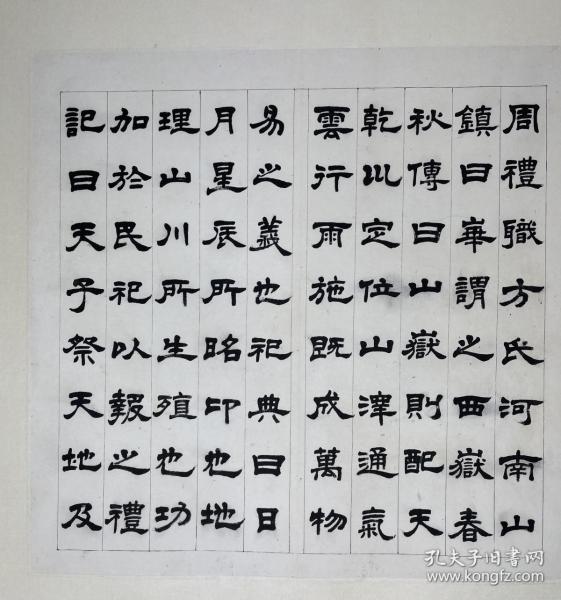 周禮職方氏河南山
鎮曰崋謂之西嶽春
秋傳曰山嶽則配天
乾巛定位山澤通氣
雲行雨施既成萬物
易之義也祀典曰日
月星辰所昭卬也地
理山川所生殖也功
加於民祀以報之禮
記曰天子祭天地及
孔夫子旧书网
www.kongfz.com